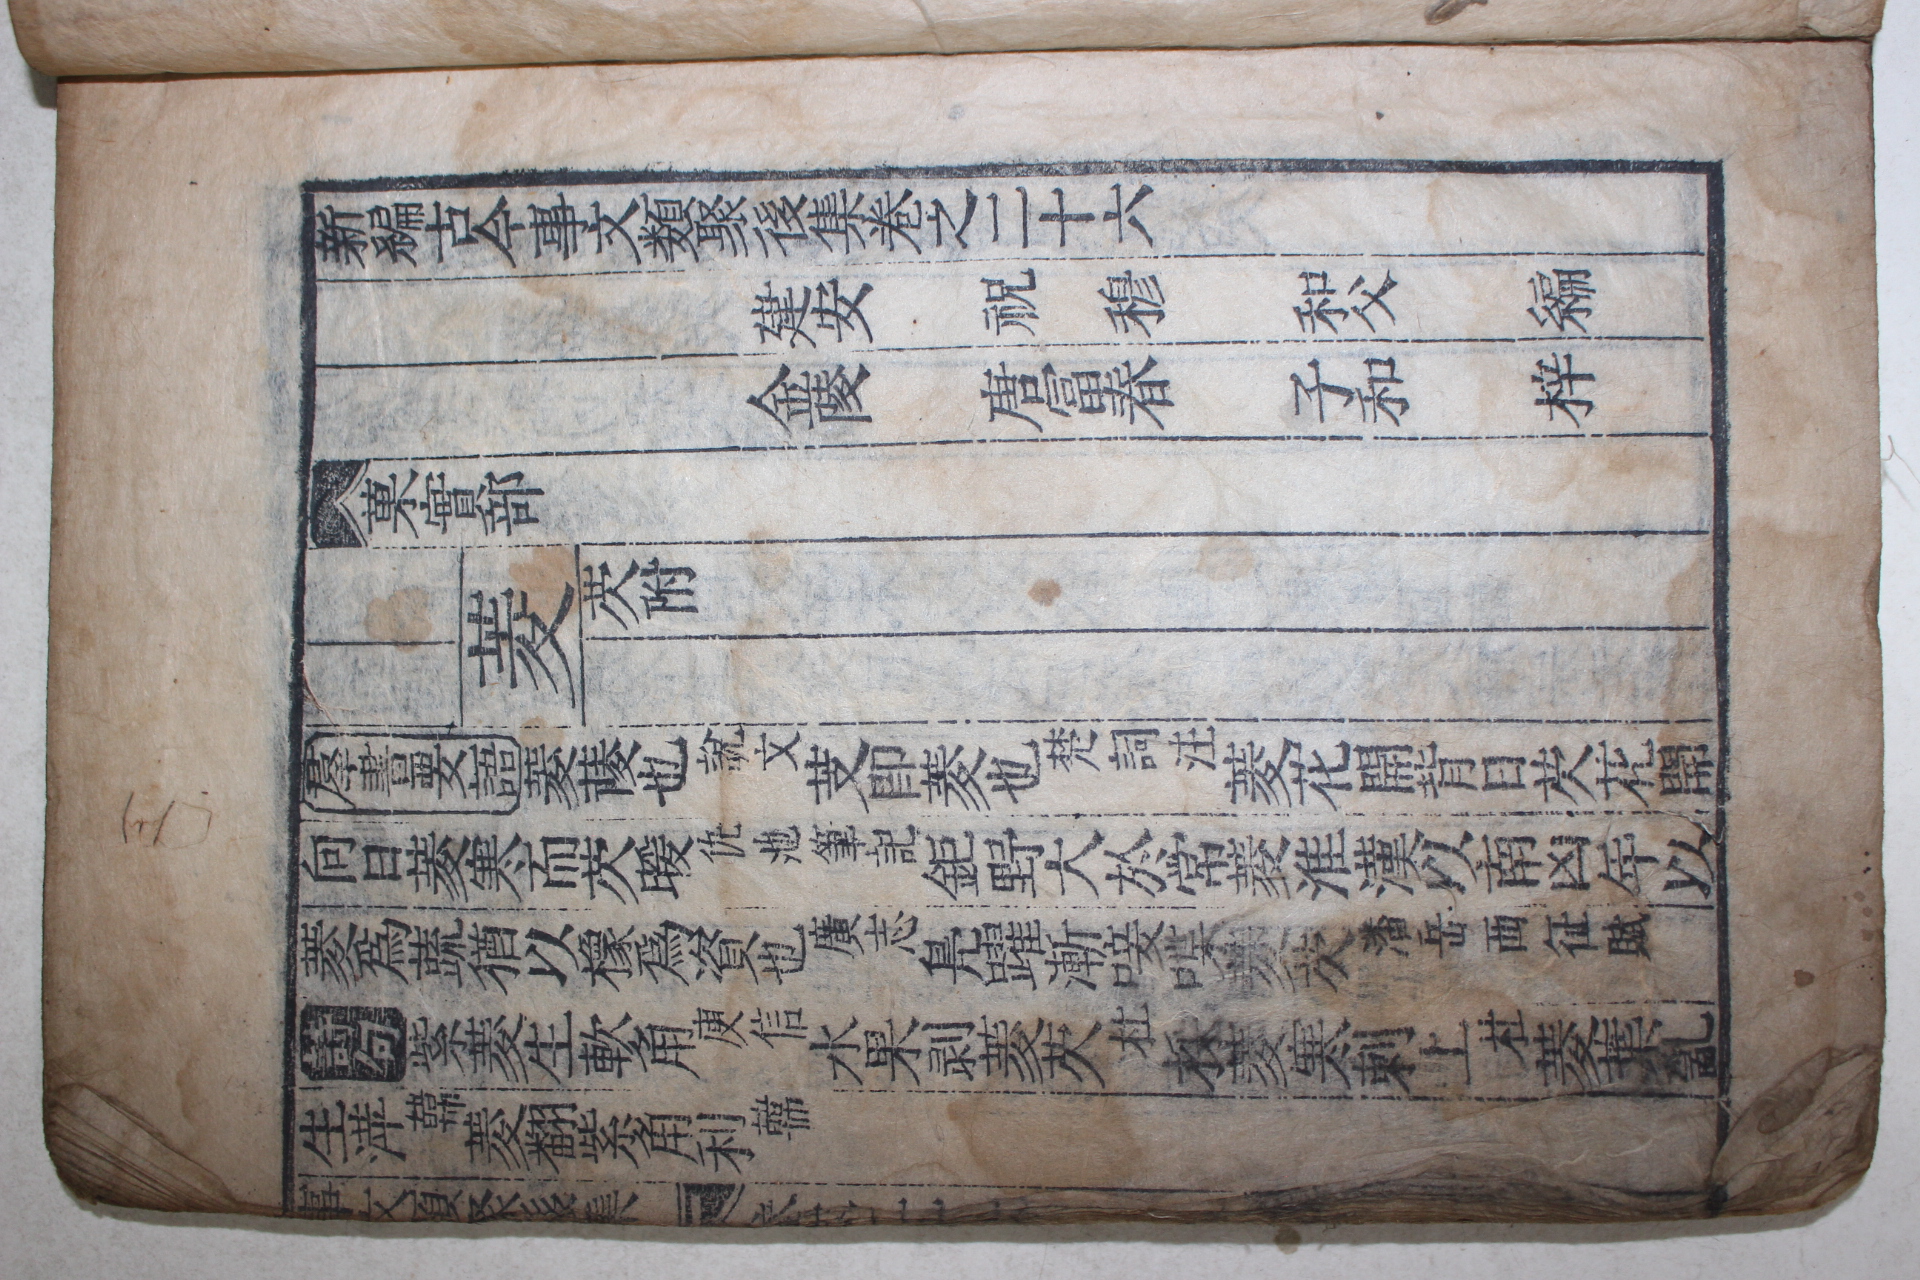 新編古今事文類聚後集卷之二十六
建安 祝 穆 和父 編
金陵 唐富春 子和 梓
菓實部
菱 芡附
羣書要語菱芰也說文芰即菱也楚詞註菱花開背日芡花開
向日菱寒而芡暖仇池筆記鉅野大水常菱淮漢以南凶年以
菱爲蔬猶以橡爲資也廣志鳧躍漸唼喋菱芡潘岳西征賦
詩句紫菱生軟角庾信水果剝菱芡杜菱寒刺上杜菱葉
生萍韓菱翻紫角利韓
事文類聚後集